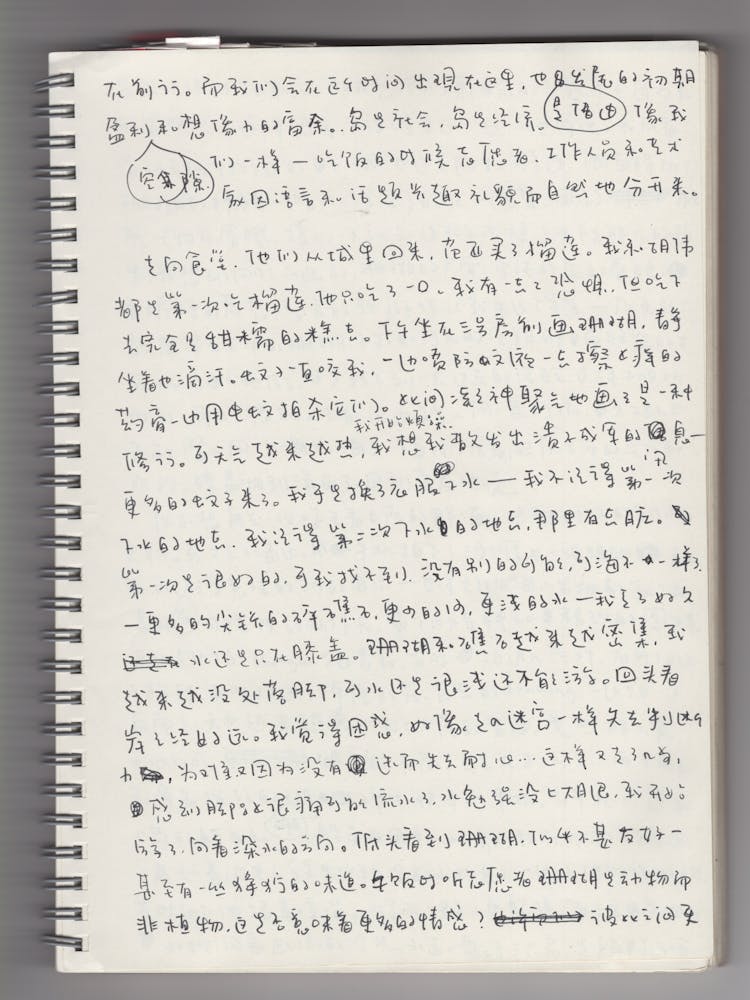 在前行。而我们会在这个时间出现在这里，也
的初期
盈利和想像力的富余。岛是社会，岛是经济，是借由 像我
空余隙
们一样—吃饭的时候 工作人员和艺术
家因语言和话题兴趣礼貌而自然地分开来。
走向食堂，他们从城里回来，在西买了榴莲。我和胡伟
都是第一次吃榴莲，他只吃了一口，我有一点点恐惧，但吃下
去完全是甜糯的糕点。下午坐在三号房前画珊瑚，静
坐着也滴汗。蚊子一直咬我，一边喷防蚊液一点 痒的
药膏一边用电蚊拍杀它们。 凝神聚气地画 是一种
我开始烦躁
修行。可天气越来越热，我想我散发出溃不成军的 息—
更多的蚊子来了。我于是换了泳服下水——我不记得第一次
下水的地点，我记得第二次下水的地点，那里有点脏。
第一次是很好的，可我找不到，没有别的可能，可海不一样了
—更多的尖锐的碎礁石，更 的 ，更浅的水—我走了好久
水还是只在膝盖。珊瑚和礁石越来越密集，我
越来越没处落脚，可水还是很浅还不能游。回头看
岸已经好远。我觉得困惑，好像走入迷宫一样失去判断
力，为难又因为没有 途而失去耐心…这样又走了几步，
感到脚 很痛可能流水了，水勉强没上大腿，我开始
游了，向着深水的方向。低头看到珊瑚，似乎不甚友好—
甚至有一丝狰狞的味道。午饭时听 珊瑚是动物而
非植物，这是否意味着更多的情感？ 彼 之间更